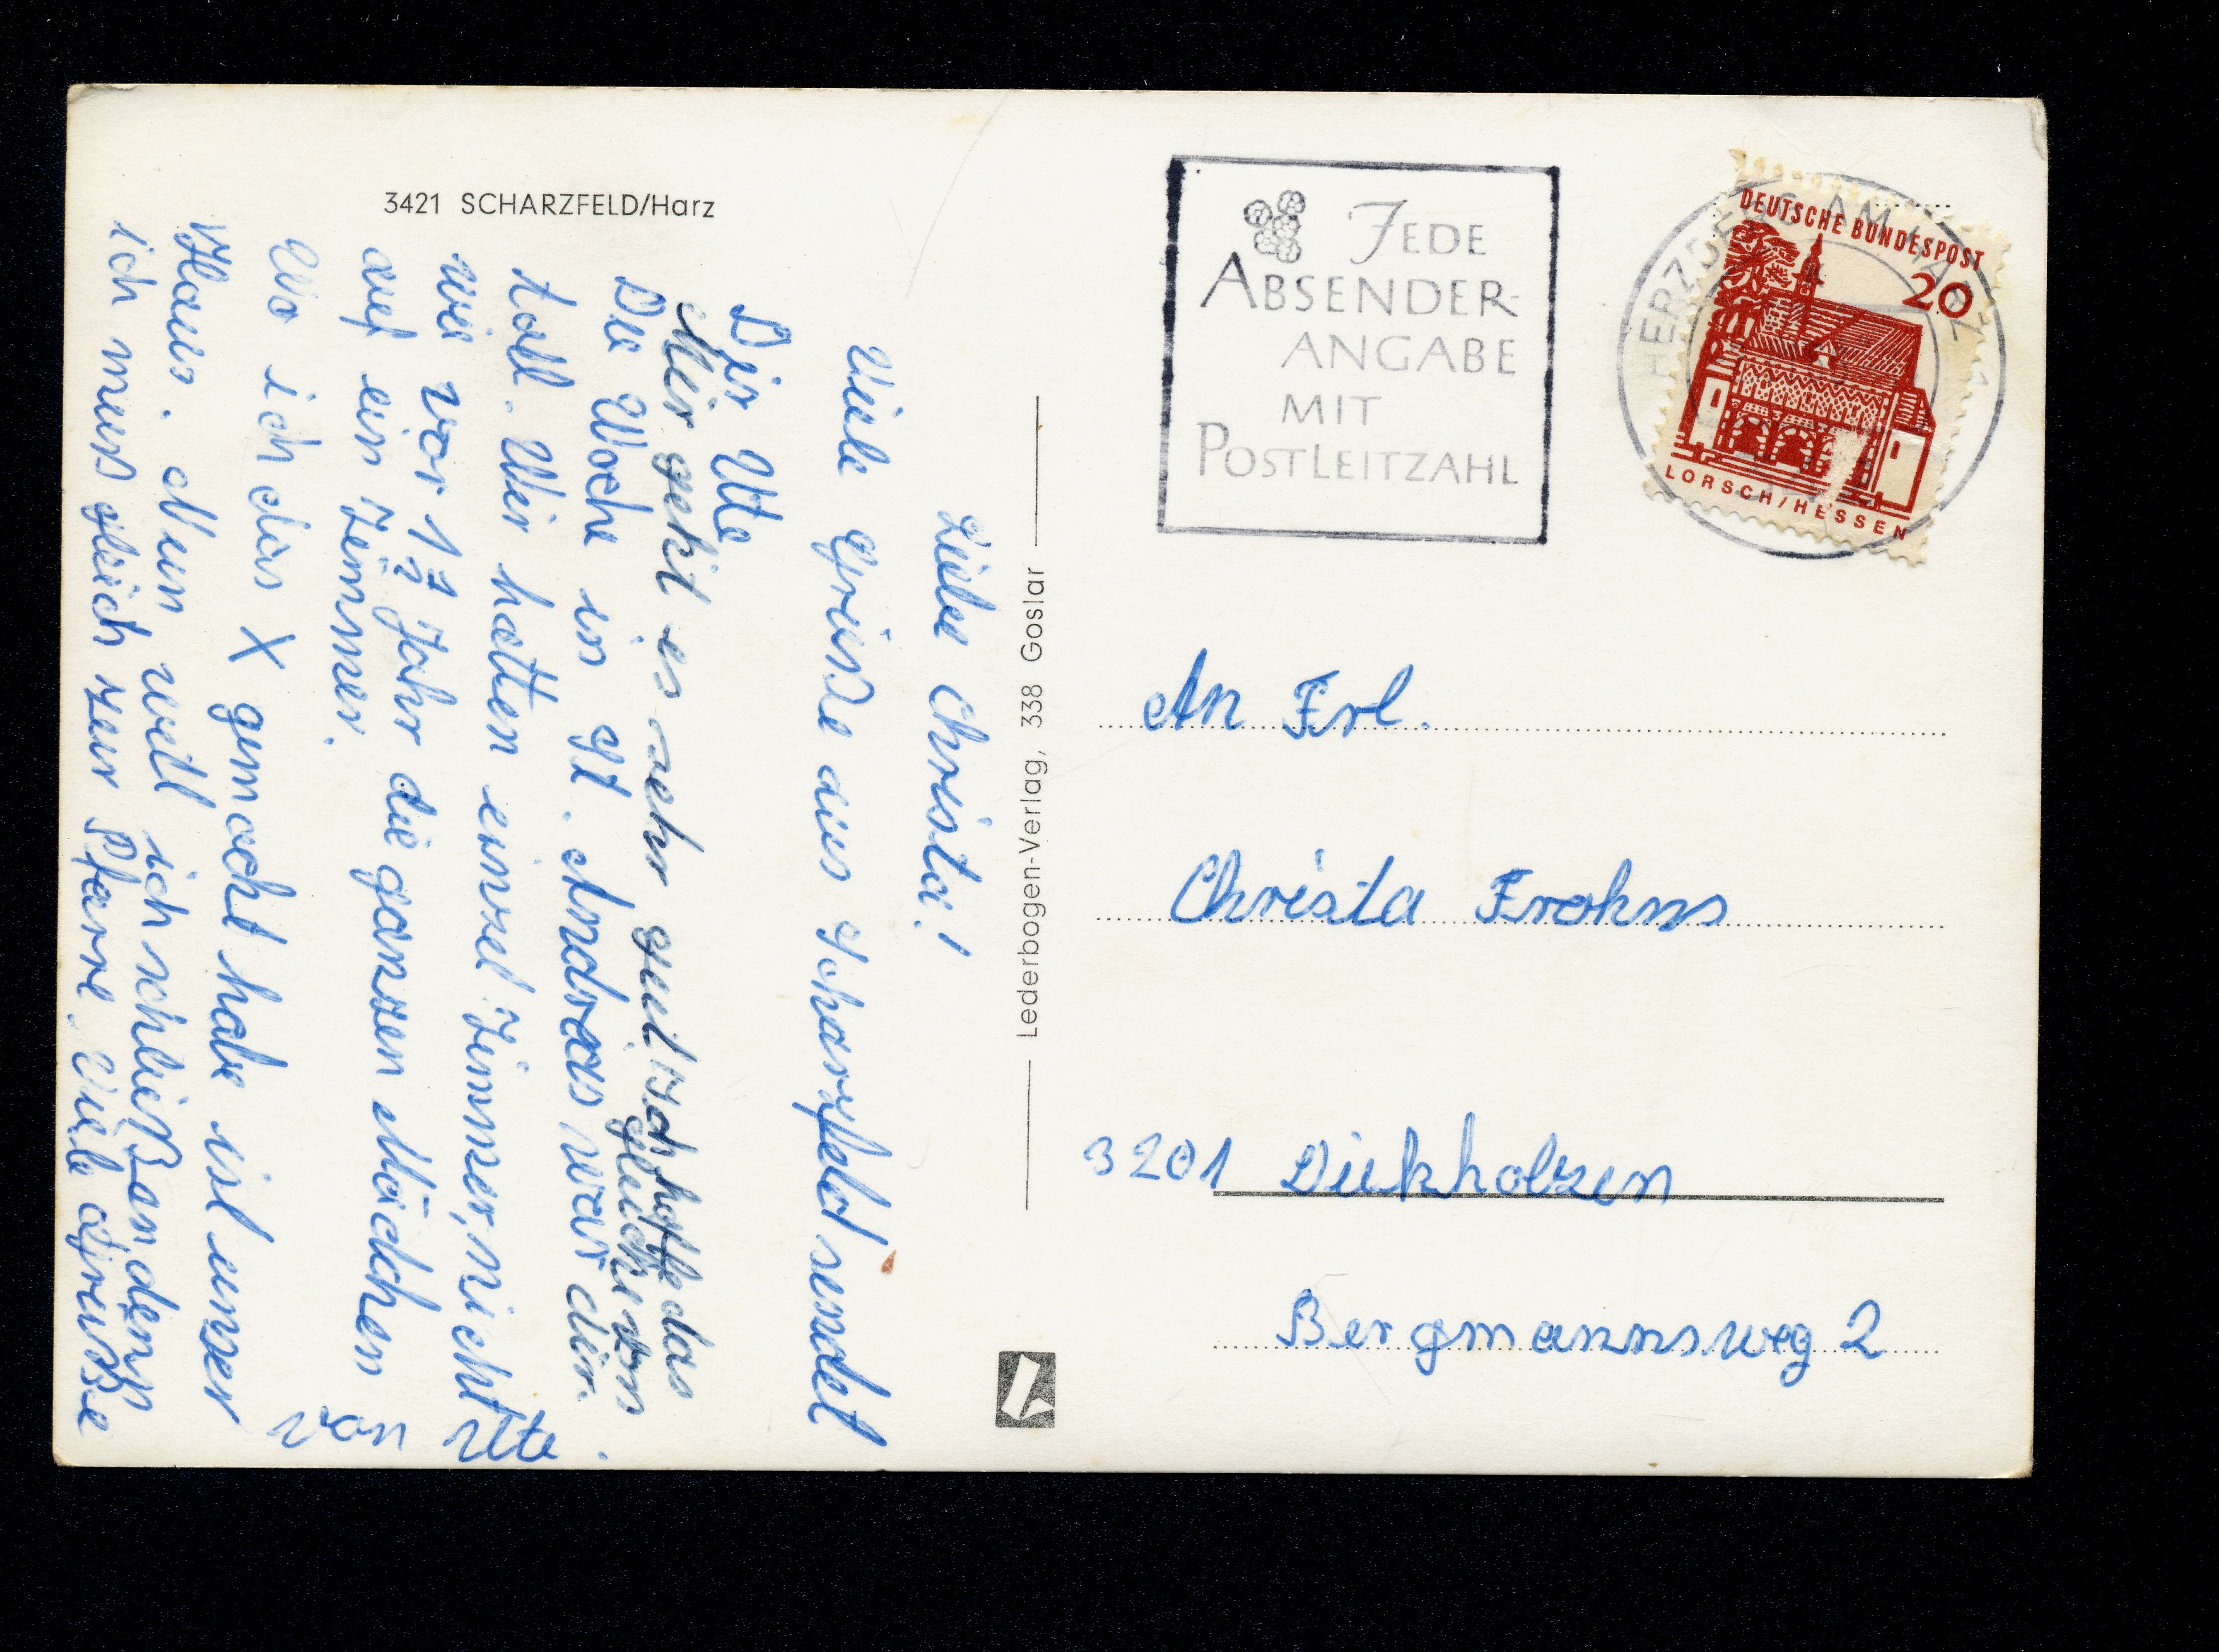 3421 SCHARZFELD/Harz
Liebe Christa!
Viele grüße aus Scharzfeld sendet
Dir Ute
Mir geht es sehr gut ich hoffe das
gleiche von dir.
Die Woche in St. Andreas war
toll. Wir hatten einzel Zimmer, nicht
wie vor 1½ Jahr die ganzen Mädchen
auf ein Zimmer.
Wo ich das X gemacht habe ist unser
Haus. Nun will ich schließen denn
ich muß gleich zur Pfarre. Viele Grüße
von Ute.
Lederbogen-Verlag, 338 Goslar
JEDE
ABSENDER-
ANGABE
MIT
POSTLEITZAHL
HERZBERG AM HARZ 1
DEUTSCHE BUNDESPOST
20
LORSCH/HESSEN
An Frl.
Christa Frohns
3201 Diekholzen
Bergmannsweg 2